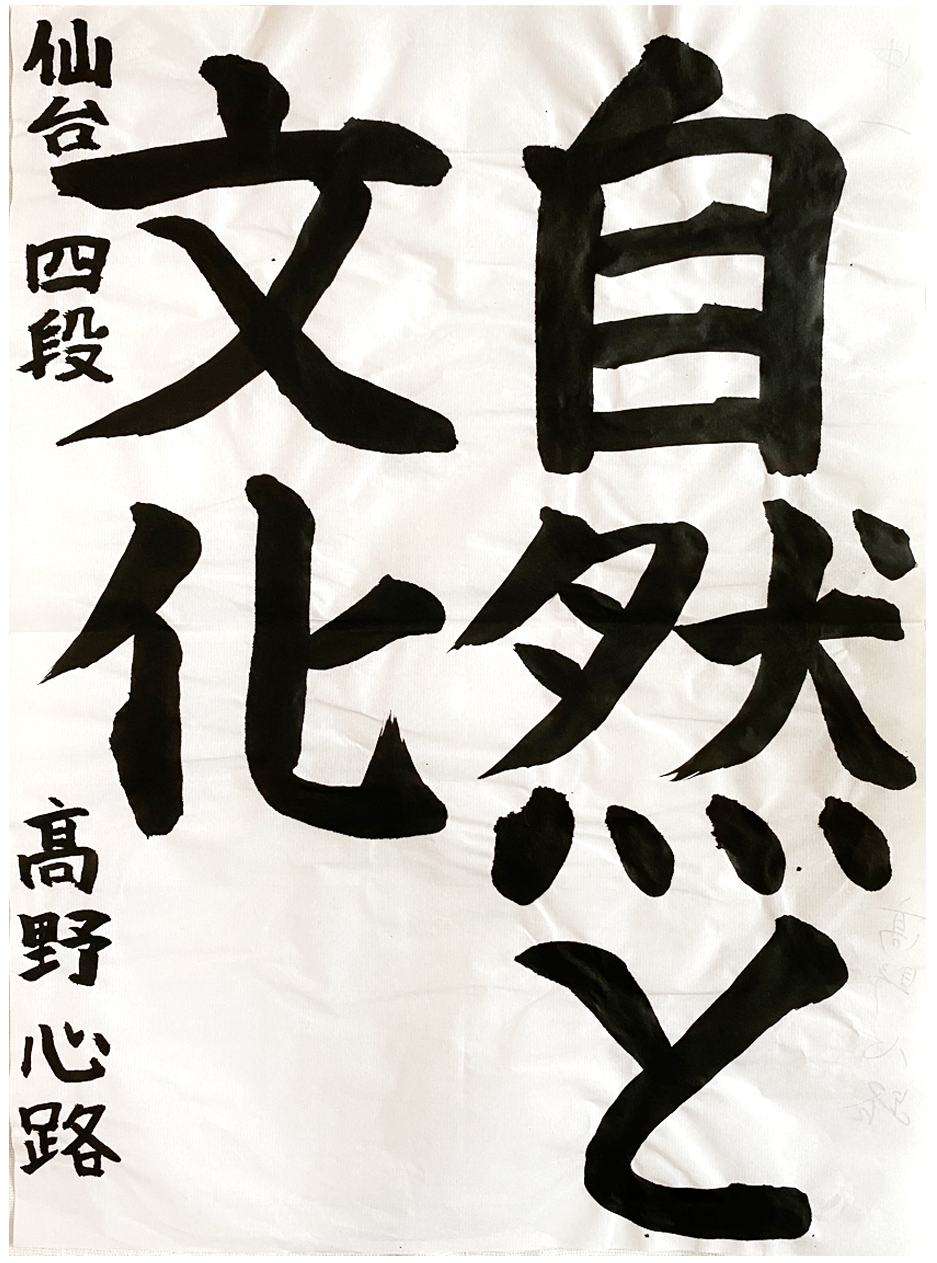 自然と
文化
仙台 四段 髙野 心路